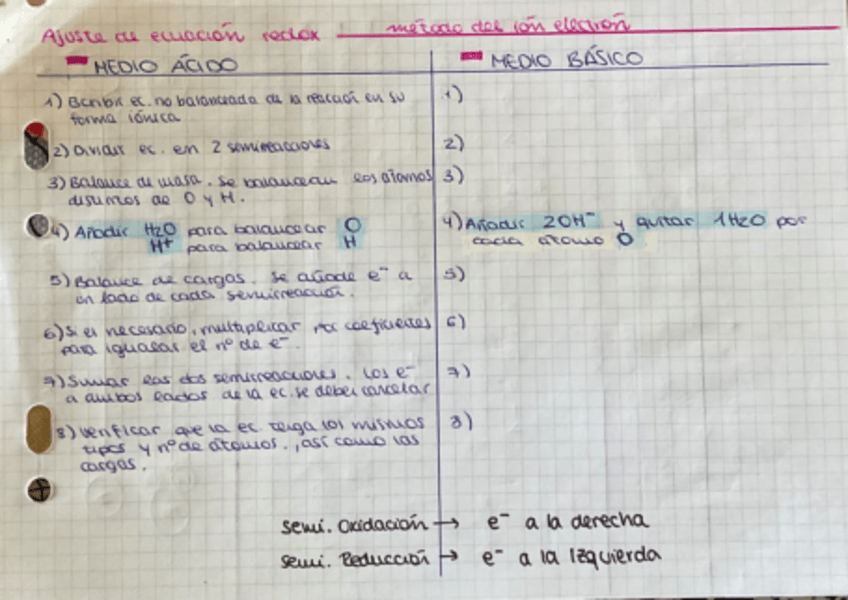 Ajuste de ecuación redox método del ión electrón
MEDIO ÁCIDO
1) Escribir ec. no balanceada de la reacción en su
forma iónica
2) Dividir ec. en 2 semirreacciones
3) Balance de masa. Se balancean los átomos
distintos de O y H.
4) Añadir H2O para balancear O
H+ para balancear H
5) Balance de cargas. Se añade e- a
un lado de cada semirreacción.
6) Si es necesario, multiplicar por coeficientes
para igualar el nº de e-.
7) Sumar las dos semirreaciones. Los e-
a ambos lados de la ec. se deben cancelar
8) Verificar que la ec. tenga los mismos
tipos y nº de átomos., así como las
cargas.
MEDIO BÁSICO
1)
2)
3)
4) Añadir 2OH- y quitar 1H2O por
cada átomo O
5)
6)
7)
8)
semi. Oxidación → e- a la derecha
semi. Reducción → e- a la Izquierda